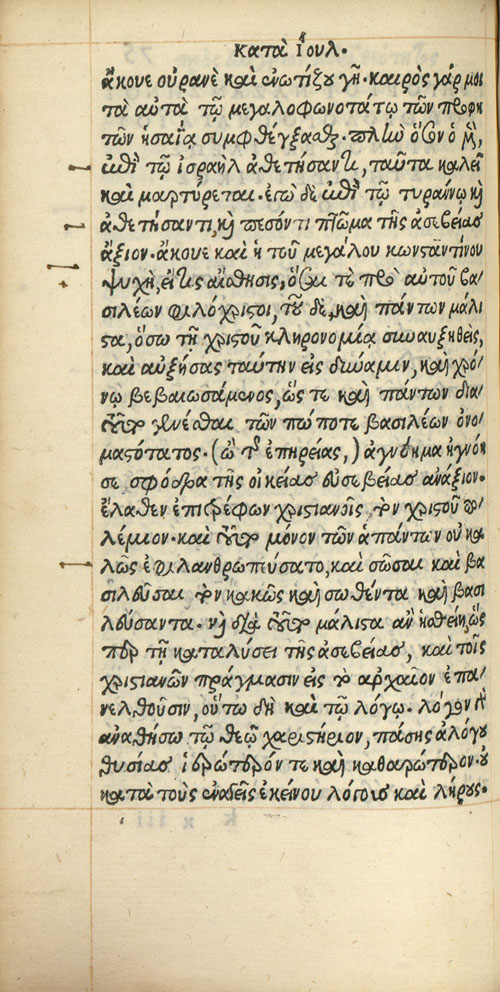 Κατὰ Ἰουλ.
ἄκουε οὐρανὲ καὶ ἐνωτίζου γῆ. καιρὸς γάρ μοι
τὰ αὐτὰ τῷ μεγαλοφωνοτάτῳ τῶν προφη
τῶν ἡσαΐᾳ συμφθέγξασθαι. πλὴν ὅσον ὁ μὲν,
ἐπὶ τῷ ἰσραὴλ ἀθετήσαντι, ταῦτα καλεῖ
καὶ μαρτύρεται. ἐγὼ δὲ ἐπὶ τῷ τυράννῳ καὶ
ἀθετήσαντι, καὶ πεσόντι πτῶμα τῆς ἀσεβείας
ἄξιον. ἄκουε καὶ ἡ τοῦ μεγάλου κωνσταντίνου
ψυχὴ, εἴ τις αἴσθησις, ὅσαι τε πρὸ αὐτοῦ βα-
σιλέων φιλόχριστοι, τοῦ δὲ, καὶ πάντων μάλι
στα, ὅσῳ τῇ χριστοῦ κληρονομίᾳ συναυξηθεὶς,
καὶ αὐξήσας ταύτην εἰς δύναμιν, καὶ χρό-
νῳ βεβαιωσάμενος, ὥς τε καὶ πάντων δια
τοῦτο γενέσθαι τῶν πώποτε βασιλέων ὀνο-
μαστότατος. (ὢ τῆς ἐπηρείας,) ἀγνόημα ἠγνόη
σε σφόδρα τῆς οἰκείας εὐσεβείας ἀνάξιον.
ἔλαθεν ἐπιτρέφων χριστιανοῖς τὸν χριστοῦ πο-
λέμιον. καὶ τοῦτο μόνον τῶν ἁπάντων οὐ κα-
λῶς ἐφιλανθρωπεύσατο, καὶ σῶσαι καὶ βα
σιλεῦσαι τὸν κακῶς καὶ σωθέντα καὶ βασι
λεύσαντα. καὶ διὰ τοῦτο μάλιστα ἂν ἡσθείη, ὥς
περ τῇ καταλύσει τῆς ἀσεβείας, καὶ τοῖς
χριστιανῶν πράγμασιν εἰς τὸ ἀρχαῖον ἐπα-
νελθοῦσιν, οὕτω δὴ καὶ τῷ λόγῳ. λόγον γὰρ
ἀναθήσω τῷ θεῷ χαριστήριον, πάσης ἀλόγου
θυσίας ἱερώτερόν τε καὶ καθαρώτερον. οὐ
κατὰ τοὺς ἐναγεῖς ἐκείνου λόγους καὶ λήρους.